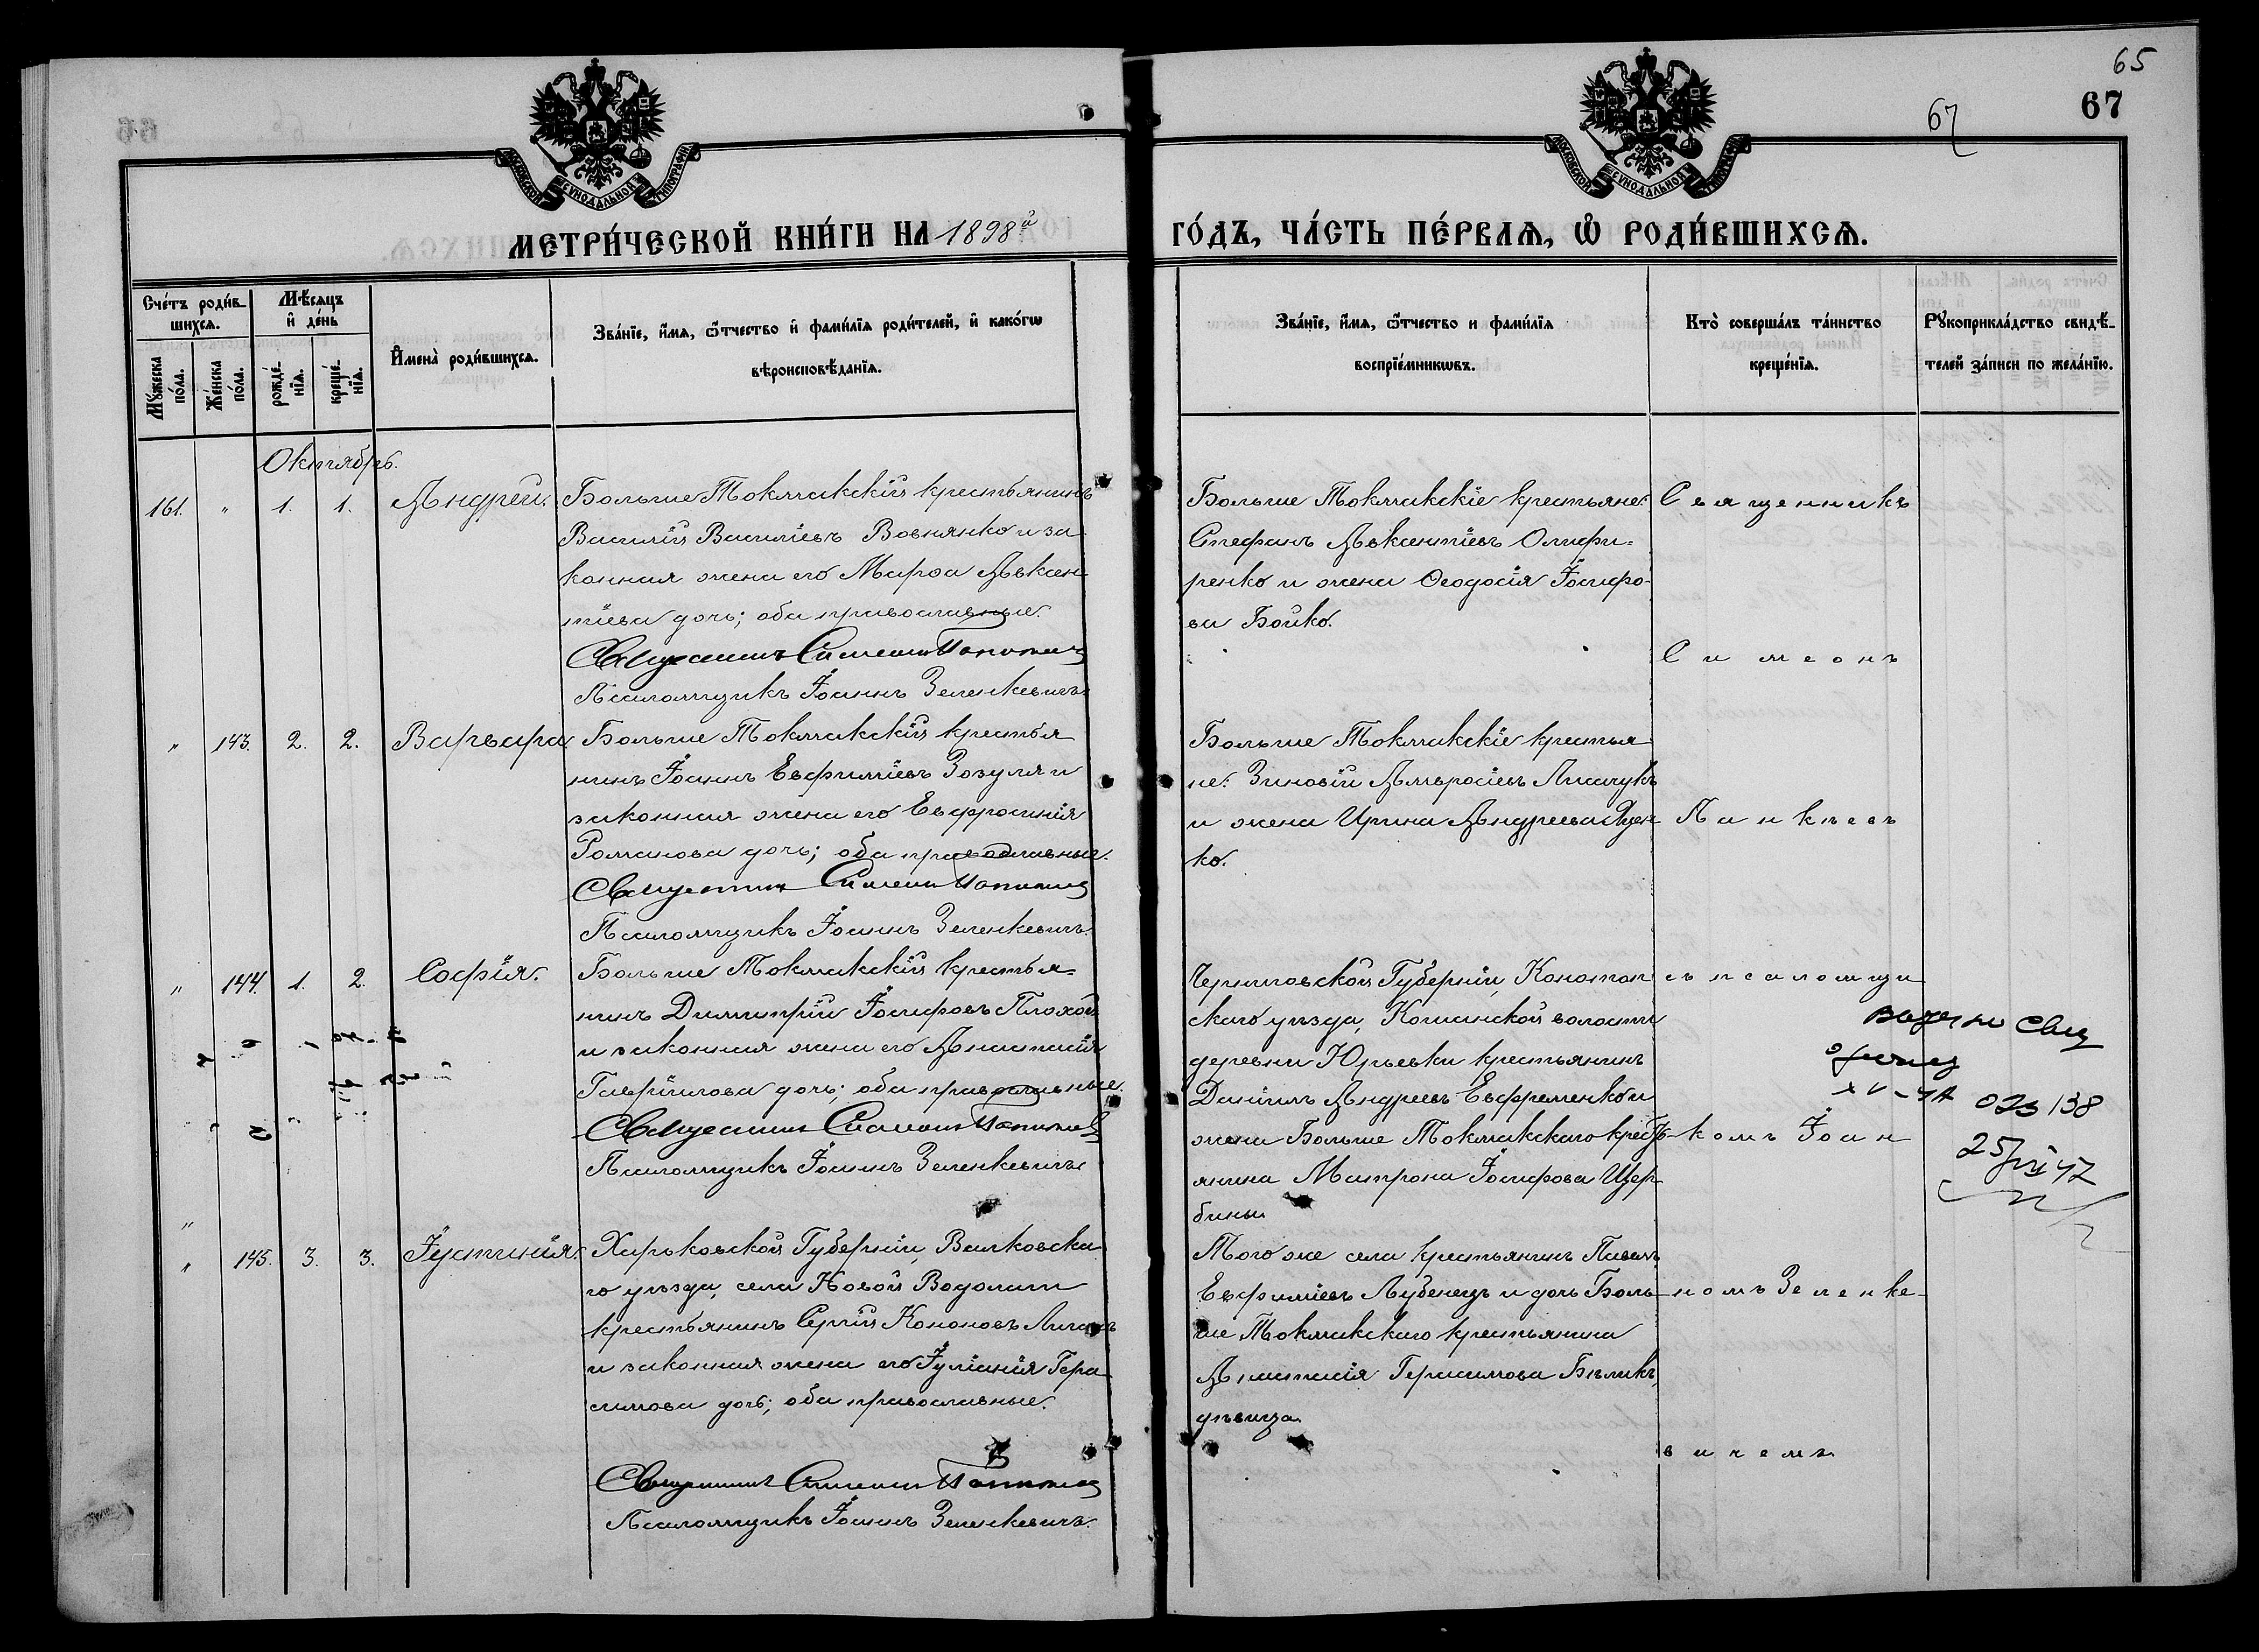 65
67
67
МОСКОВСКОЙ СУНОДАЛЬНОЙ ТИПОГРАФІИ
МОСКОВСКОЙ СУНОДАЛЬНОЙ ТИПОГРАФІИ
МЕТРИ́ЧЕСКОЙ КНИ́ГИ НА 1898й
ГО́ДЪ, ЧА́СТЬ ПЕ́РВАѦ, Ѽ РОДИ́ВШИХСѦ.
Сче́тъ роди́в-
шихсѧ.
Мѣ́сѧцъ
и҆ де́нь
Мꙋ́жеска по́ла.
Же́нска по́ла.
рожде́-
нїѧ.
креще́-
нїѧ.
И҆мена̀ роди́вшихсѧ.
Зва́нїе, и҆́мѧ, ѻ҆́тчество и҆ фами́лїѧ роди́телей, и҆ како́гѡ
вѣроисповѣ́данїѧ.
Зва́нїе, и҆́мѧ, ѻ҆́тчество и фами́лїѧ
воспрїе́мникѡвъ.
Кто̀ соверша́лъ та́инство
креще́нїѧ.
Рꙋкоприкла́дство свидѣ́-
телей за́писи по жела́нїю.
Октябрь.
161. " 1. 1. Андрей.
Больше Токмакскій крестьянинъ
Василій Василіевъ Вовнянко и за
конная жена его Марѳа Авксен
тіева дочь; оба православные.
Священникъ Симеонъ
Псаломщикъ Іоаннъ Зеленкевичъ.
Больше Токмакскіе крестьяне:
Стефанъ Авксентіевъ Олифи-
ренко и жена Ѳеодосія Іосифо-
ва Бойко.
Священникъ
Симеонъ
" 143. 2. 2. Варвара.
Больше Токмакскій крестья
нинъ Іоаннъ Евфиміевъ Зозуля и
законная жена его Евфросинія
Романова дочь; оба православные.
Священникъ Симеонъ
Псаломщикъ Іоаннъ Зеленкевичъ.
Больше Токмакскіе крестья
не: Зиновій Амвросіевъ Лисачукъ
и жена Ирина Андреева
ко.
" 144. 1. 2. Софія.
Больше Токмакскій крестья-
нинъ Димитрій Іосифовъ Плохой
и законная жена его Анастасія
Гавріилова дочь; оба православные.
Священникъ Симеонъ
Псаломщикъ Іоаннъ Зеленкевичъ.
Черниговской Губерніи, Конотоп
скаго уѣзда,
волости
деревни Юрьевки крестьянинъ
Даніилъ Андреевъ Евфременко и
жена Больше Токмакскаго кресть-
янина Матрона Іосифова Щер-
бины
съ псаломщи
комъ Іоан
138
25
" 145. 3. 3. Іустинія.
Харьковской Губерніи, Валковска
го уѣзда, села Новой Водолаги
крестьянинъ Сергій Кононовъ
и законная жена его Іуліанія Гера
симова дочь; оба православные.
Священникъ Симеонъ
Псаломщикъ Іоаннъ Зеленкевичъ.
Того же села крестьянинъ Павелъ
Евфиміевъ Лубенецъ и дочь Боль-
ше Токмакскаго крестьянина
Анастасія Герасимова Бѣликъ,
дѣвица.
номъ Зеленке-
вичемъ.